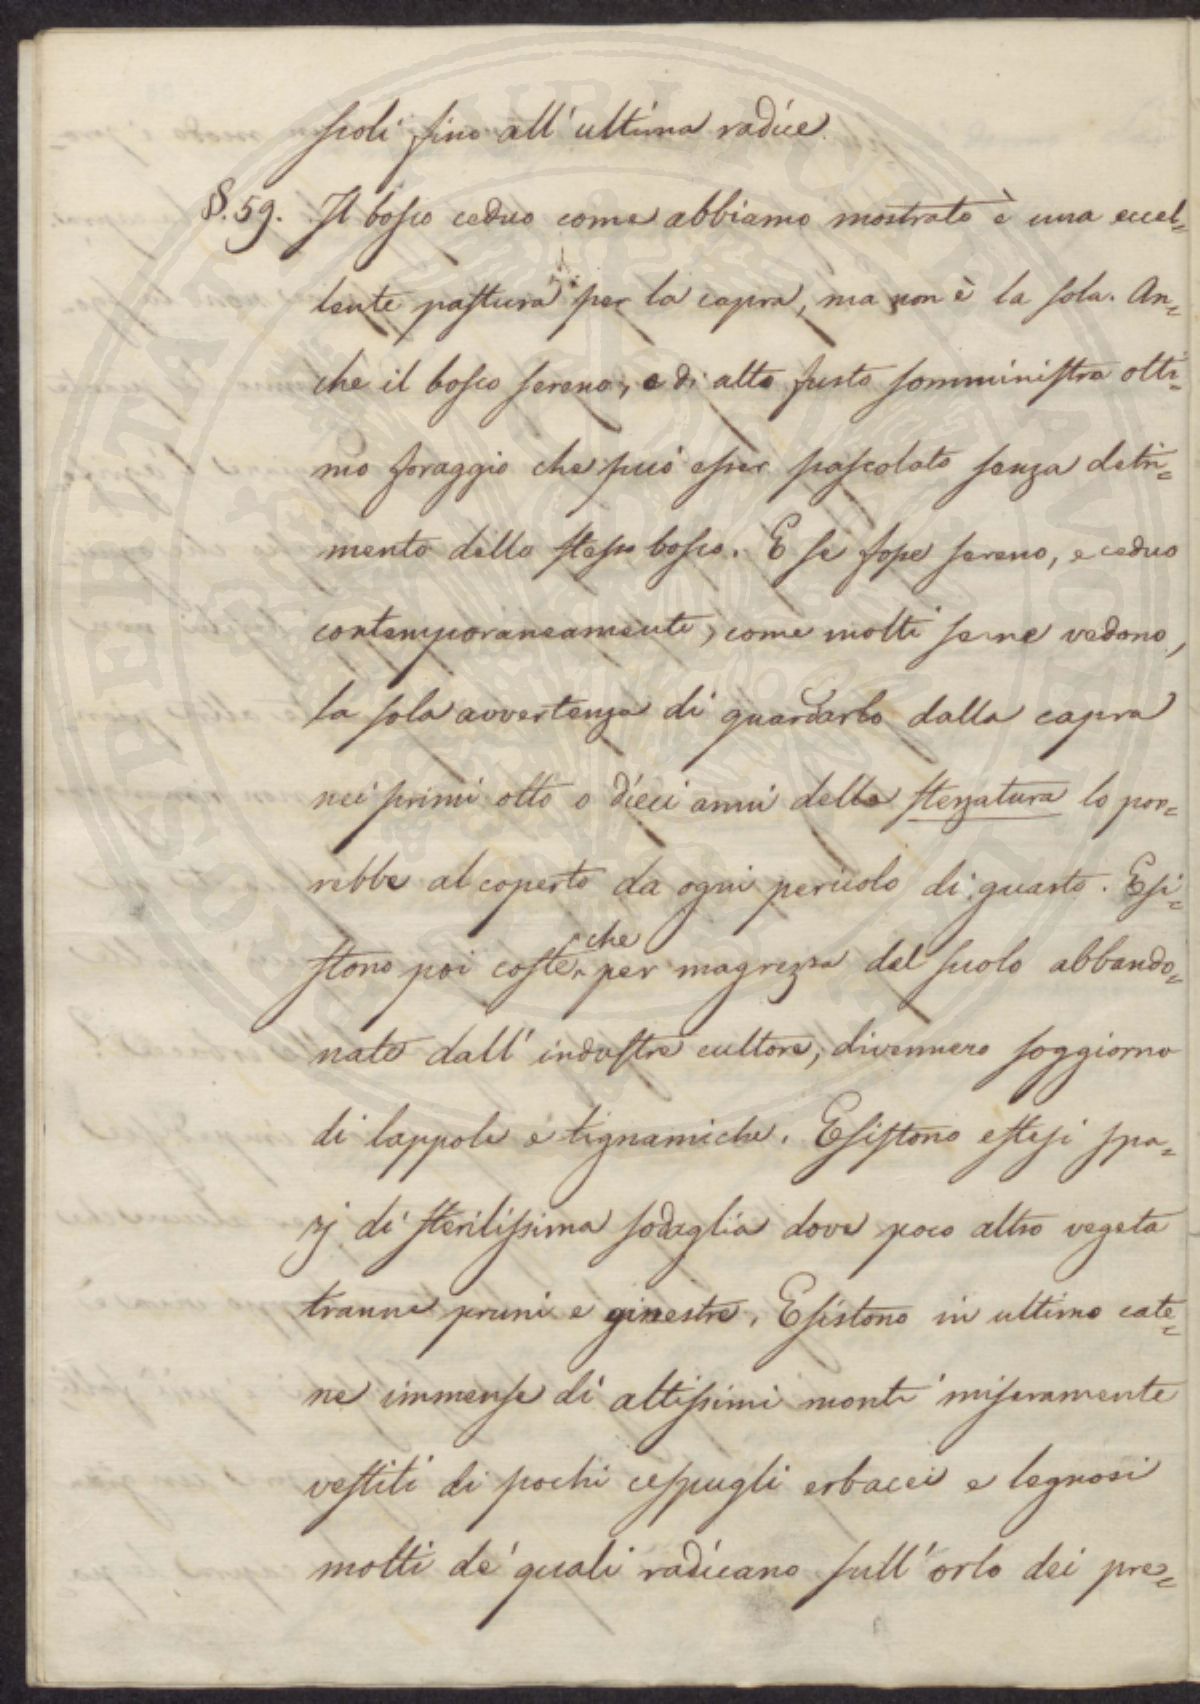 scoli fino all'ultima radice.
§. 59. Il bosco ceduo come abbiamo mostrato è una eccel=
lente pastura per la capra, ma non è la sola. An=
che il bosco sereno, e di alto fusto somministra otti=
mo foraggio che può esser pascolato senza detri=
mento dello stesso bosco. E se fosse sereno, e ceduo
contemporaneamente, come molti se ne vedono,
la sola avvertenza di guardarlo dalla capra
nei primi otto o dieci anni della sterzatura lo por=
rebbe al coperto da ogni pericolo di guasto. Esi=
stono poi coste, che per magrezza del suolo abbando=
nate dall'industre cultore, divennero soggiorno
di lappole e tignamiche. Esistono estesi spa=
zj di sterilissima sodaglia dove poco altro vegeta
tranne pruni e ginestre. Esistono in ultimo cate=
ne immense di altissimi monti miseramente
vestiti di pochi cespugli erbacei e legnosi
molti de' quali radicano sull'orlo dei pre=